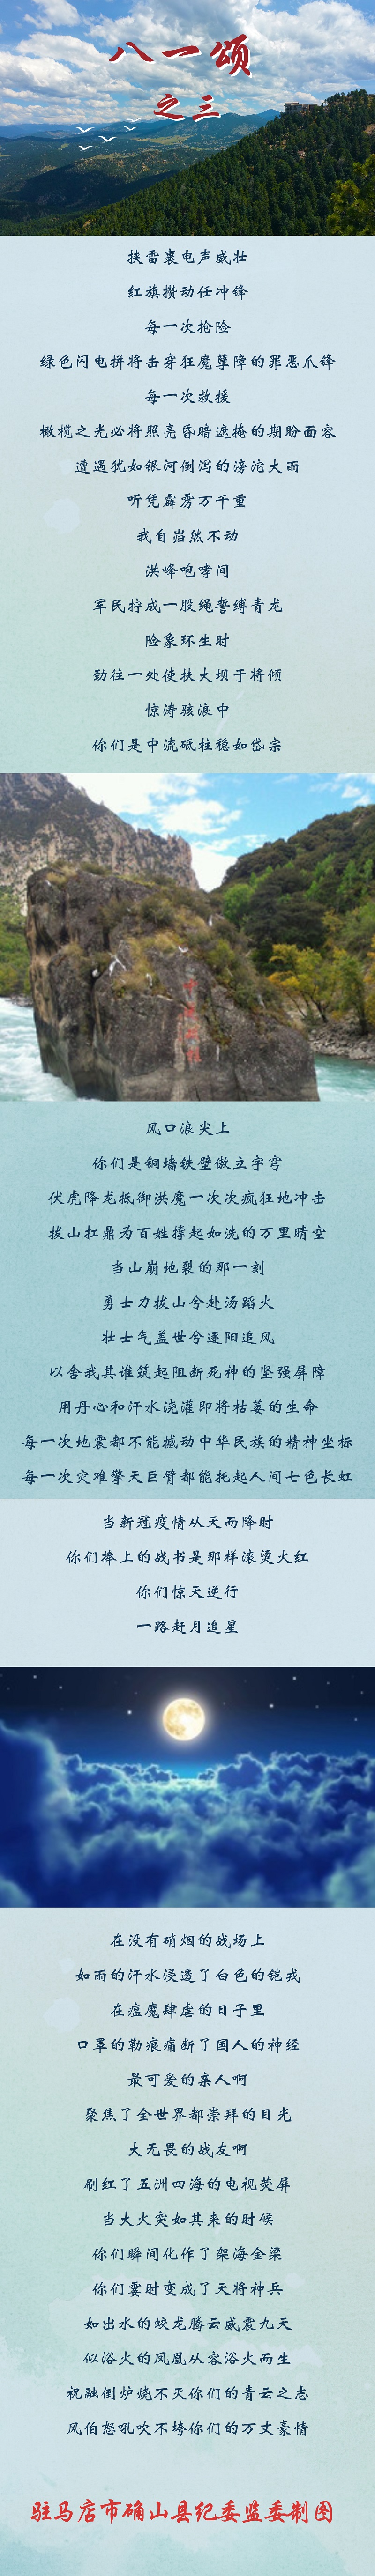 八一颂
之三
挟雷裹电声威壮
红旗攒动任冲锋
每一次抢险
绿色闪电拼将击穿狂魔孽障的罪恶爪锋
每一次救援
橄榄之光必将照亮昏暗遮掩的期盼面容
遭遇犹如银河倒泻的滂沱大雨
听凭霹雳万千重
我自岿然不动
洪峰咆哮间
军民拧成一股绳誓缚青龙
险象环生时
劲往一处使扶大坝于将倾
惊涛骇浪中
你们是中流砥柱稳如岱宗
风口浪尖上
你们是铜墙铁壁傲立宇穹
伏虎降龙抵御洪魔一次次疯狂地冲击
拔山扛鼎为百姓撑起如洗的万里晴空
当山崩地裂的那一刻
勇士力拔山兮赴汤蹈火
壮士气盖世兮逐阳追风
以舍我其谁筑起阻断死神的坚强屏障
用丹心和汗水浇灌即将枯萎的生命
每一次地震都不能撼动中华民族的精神坐标
每一次灾难擎天巨臂都能托起人间七色长虹
当新冠疫情从天而降时
你们捧上的战书是那样滚烫火红
你们惊天逆行
一路赶月追星
在没有硝烟的战场上
如雨的汗水浸透了白色的铠戎
在瘟魔肆虐的日子里
口罩的勒痕痛断了国人的神经
最可爱的亲人啊
聚焦了全世界都崇拜的目光
大无畏的战友啊
刷红了五洲四海的电视荧屏
当大火突如其来的时候
你们瞬间化作了架海金梁
你们霎时变成了天将神兵
如出水的蛟龙腾云威震九天
似浴火的凤凰从容浴火而生
祝融倒炉烧不灭你们的青云之志
风伯怒吼吹不垮你们的万丈豪情
驻马店市确山县纪委监委制图